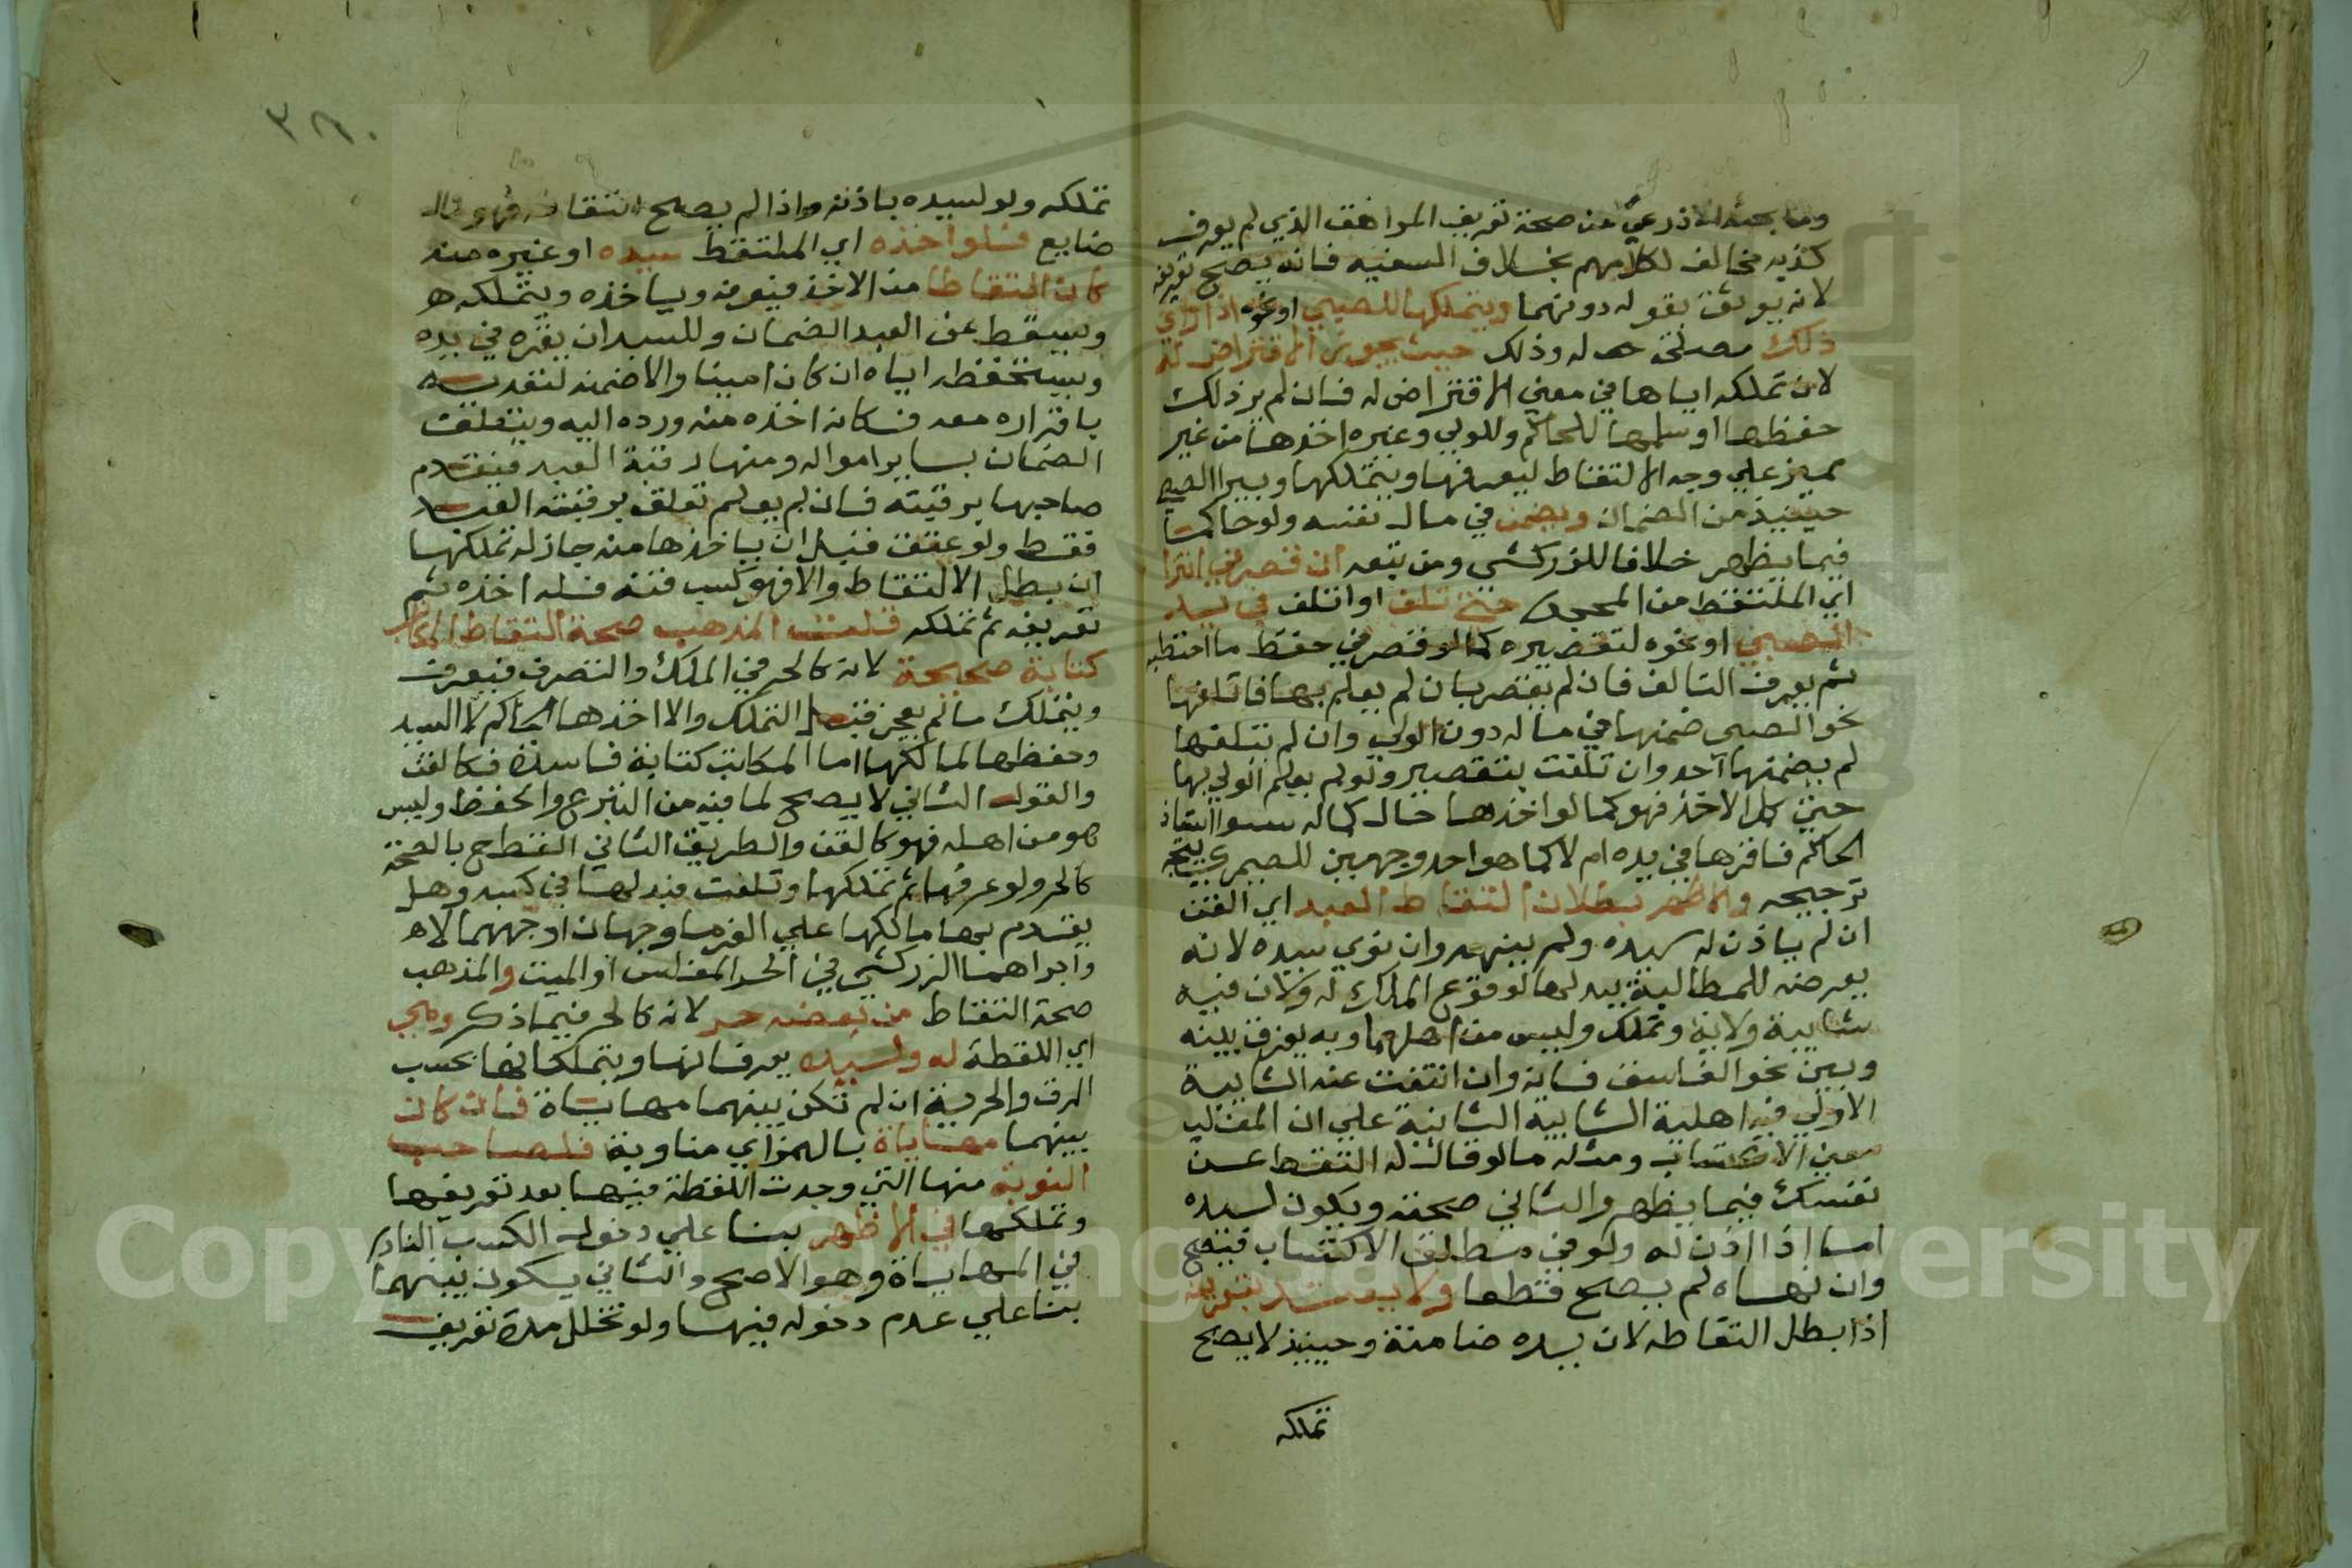 وما بحثه الاذرعي من صحة تعريف المراهق الذي لم يعرف
كذبه مخالف لكلامهم بخلاف السفيه فانه يصح تعريفه
لانه يوثق بقوله دونهما ويتملكها للصبي او نحوه اذا راي
ذلك مصلحة له وذلك حيث يجوز الاقتراض له
لان تملكه اياها في معني الاقتراض له فان لم ير ذلك
حفظها او سلمها للحاكم وللولي وغيره اخذها من غير
مميز علي وجه الالتقاط ليعرفها ويتملكها ويبرا الصبي
حينيذ من الضمان ويضمن في مال نفسه ولو حاكما
فيما يظهر خلافا للزركشي ومن تبعه ان قصر في انتزا
اي الملتقط من المحجور حتي تلف او اتلف في يد
الصبي او نحوه لتقصيره كما لو قصر في حفظ ما احتطبه
ثم يعرف التالف فان لم يقصر بان لم يعلم بها فاتلفها
نحو الصبي ضمنها في ماله دون الولي وان لم يتلفها
لم يضمنها احد وان تلفت بتقصير ولو لم يعلم الولي بها
حتي كمل الاخذ فهو كما لو اخذها حال كماله سوا استاذن
الحاكم فاقرها في يده ام لا كما هو احد وجهين للصيمري يتجه
ترجيحه والاظهر بطلان التقاط العبد اي القن
ان لم ياذن له سيده ولم ينهه وان نوي سيده لانه
يعرضه للمطالبة ببدلها لوقوع الملك له ولان فيه
شايبة ولاية وتملك وليس من اهلهما وبه يفرق بينه
وبين نحو الفاسق فانه وان انتفت عنه الشايبة
الاولي فيه اهلية الشايبة الثانية علي ان المغلب
معني الاكتساب ومثله ما لو قال له التقط عن
نفسك فيما يظهر والثاني صحته ويكون لسيده
اما اذا اذن له ولو في مطلق الاكتساب فيصح
وان نهاه لم يصح قطعا ولا يعتد بتعريفه
اذا بطل التقاطه لان يده ضامنة وحينيذ لا يصح
تملكه
٣٨٠
تملكه ولو لسيده باذنه واذا لم يصح التقاطه فهو مال
ضايع فلو اخذه اي الملتقط سيده او غيره منه
كان التقاطا من الاخذ فيعرفه وياخذه ويتملكه
ويسقط عن العبد الضمان وللسيد ان يقره في يده
ويستحفظه اياه ان كان امينا والا ضمنه لتعديه
باقراره معه فكانه اخذه منه ورده اليه ويتعلق
الضمان بساير امواله ومنها رقبة العبد فيقدم
صاحبها برقبته فان لم يعلم تعلق برقبة العبد
فقط ولو عتق قبل ان ياخذها منه جاز له تملكها
ان بطل الالتقاط والا فهو كسب قنه فله اخذه ثم
تعريفه ثم تملكه قلت المذهب صحة التقاط المكاتب
كتابة صحيحة لانه كالحر في الملك والتصرف فيعرف
ويتملك ما لم يعجز قبل التملك والا اخذها الحاكم لا السيد
وحفظها لمالكها اما المكاتب كتابة فاسدة فكالقن
والقول الثاني لا يصح لما فيه من التبرع والحفظ وليس
هو من اهله فهو كالقن والطريق الثاني القطع بالصحة
كالحر ولو عرفها ثم تملكها وتلفت فبدلها في كسبه وهل
يقدم بها مالكها علي الغرما وجهان اوجههما لا
واجراهما الزركشي في الحر المفلس او الميت والمذهب
صحة التقاط من بعضه حر لانه كالحر فيما ذكر وهي
اي اللقطة له ولسيده يعرفانها ويتملكانها بحسب
الرق والحرية ان لم تكن بينهما مهاياة فان كانت
بينهما مهاياة بالهمز اي مناوبة فلصاحب
النوبة منها التي وجدت اللقطة فيها بعد تعريفها
وتملكها في الاظهر بنا علي دخول الكسب النادر
في المهاياة وهو الاصح والثاني يكون بينهما
بنا علي عدم دخوله فيها ولو تخلل مدة تعريف
Copyright © King Saud University